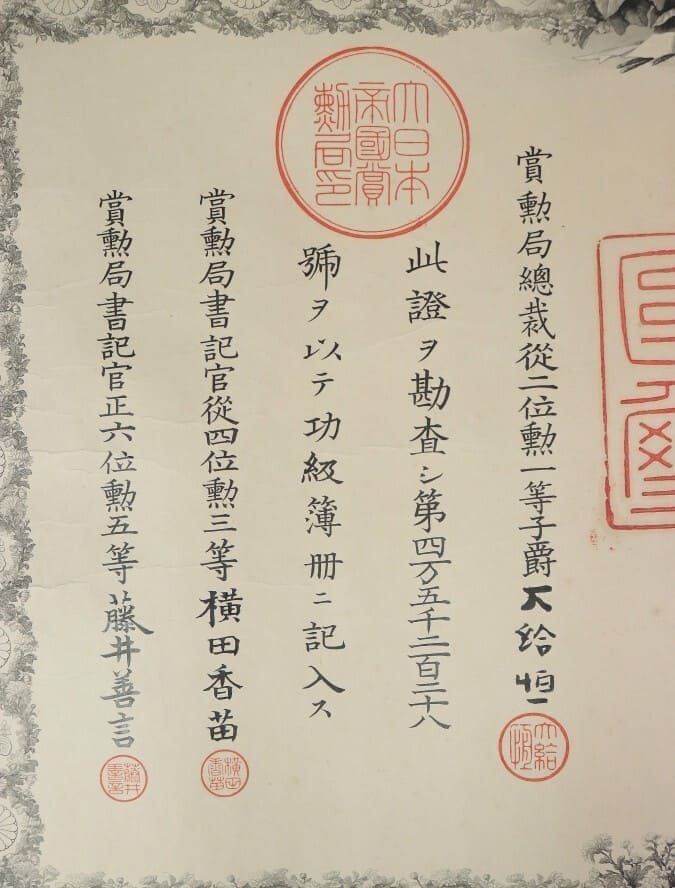 大日本
帝國賞
勲局印
賞勲局總裁從二位勲一等子爵大給恒
大給
恒
此證ヲ勘査シ第四万五千二百二十八
號ヲ以テ功級簿册ニ記入ス
賞勲局書記官從四位勲三等横田香苗
横田
香苗
賞勲局書記官正六位勲五等藤井善言
藤井
善言